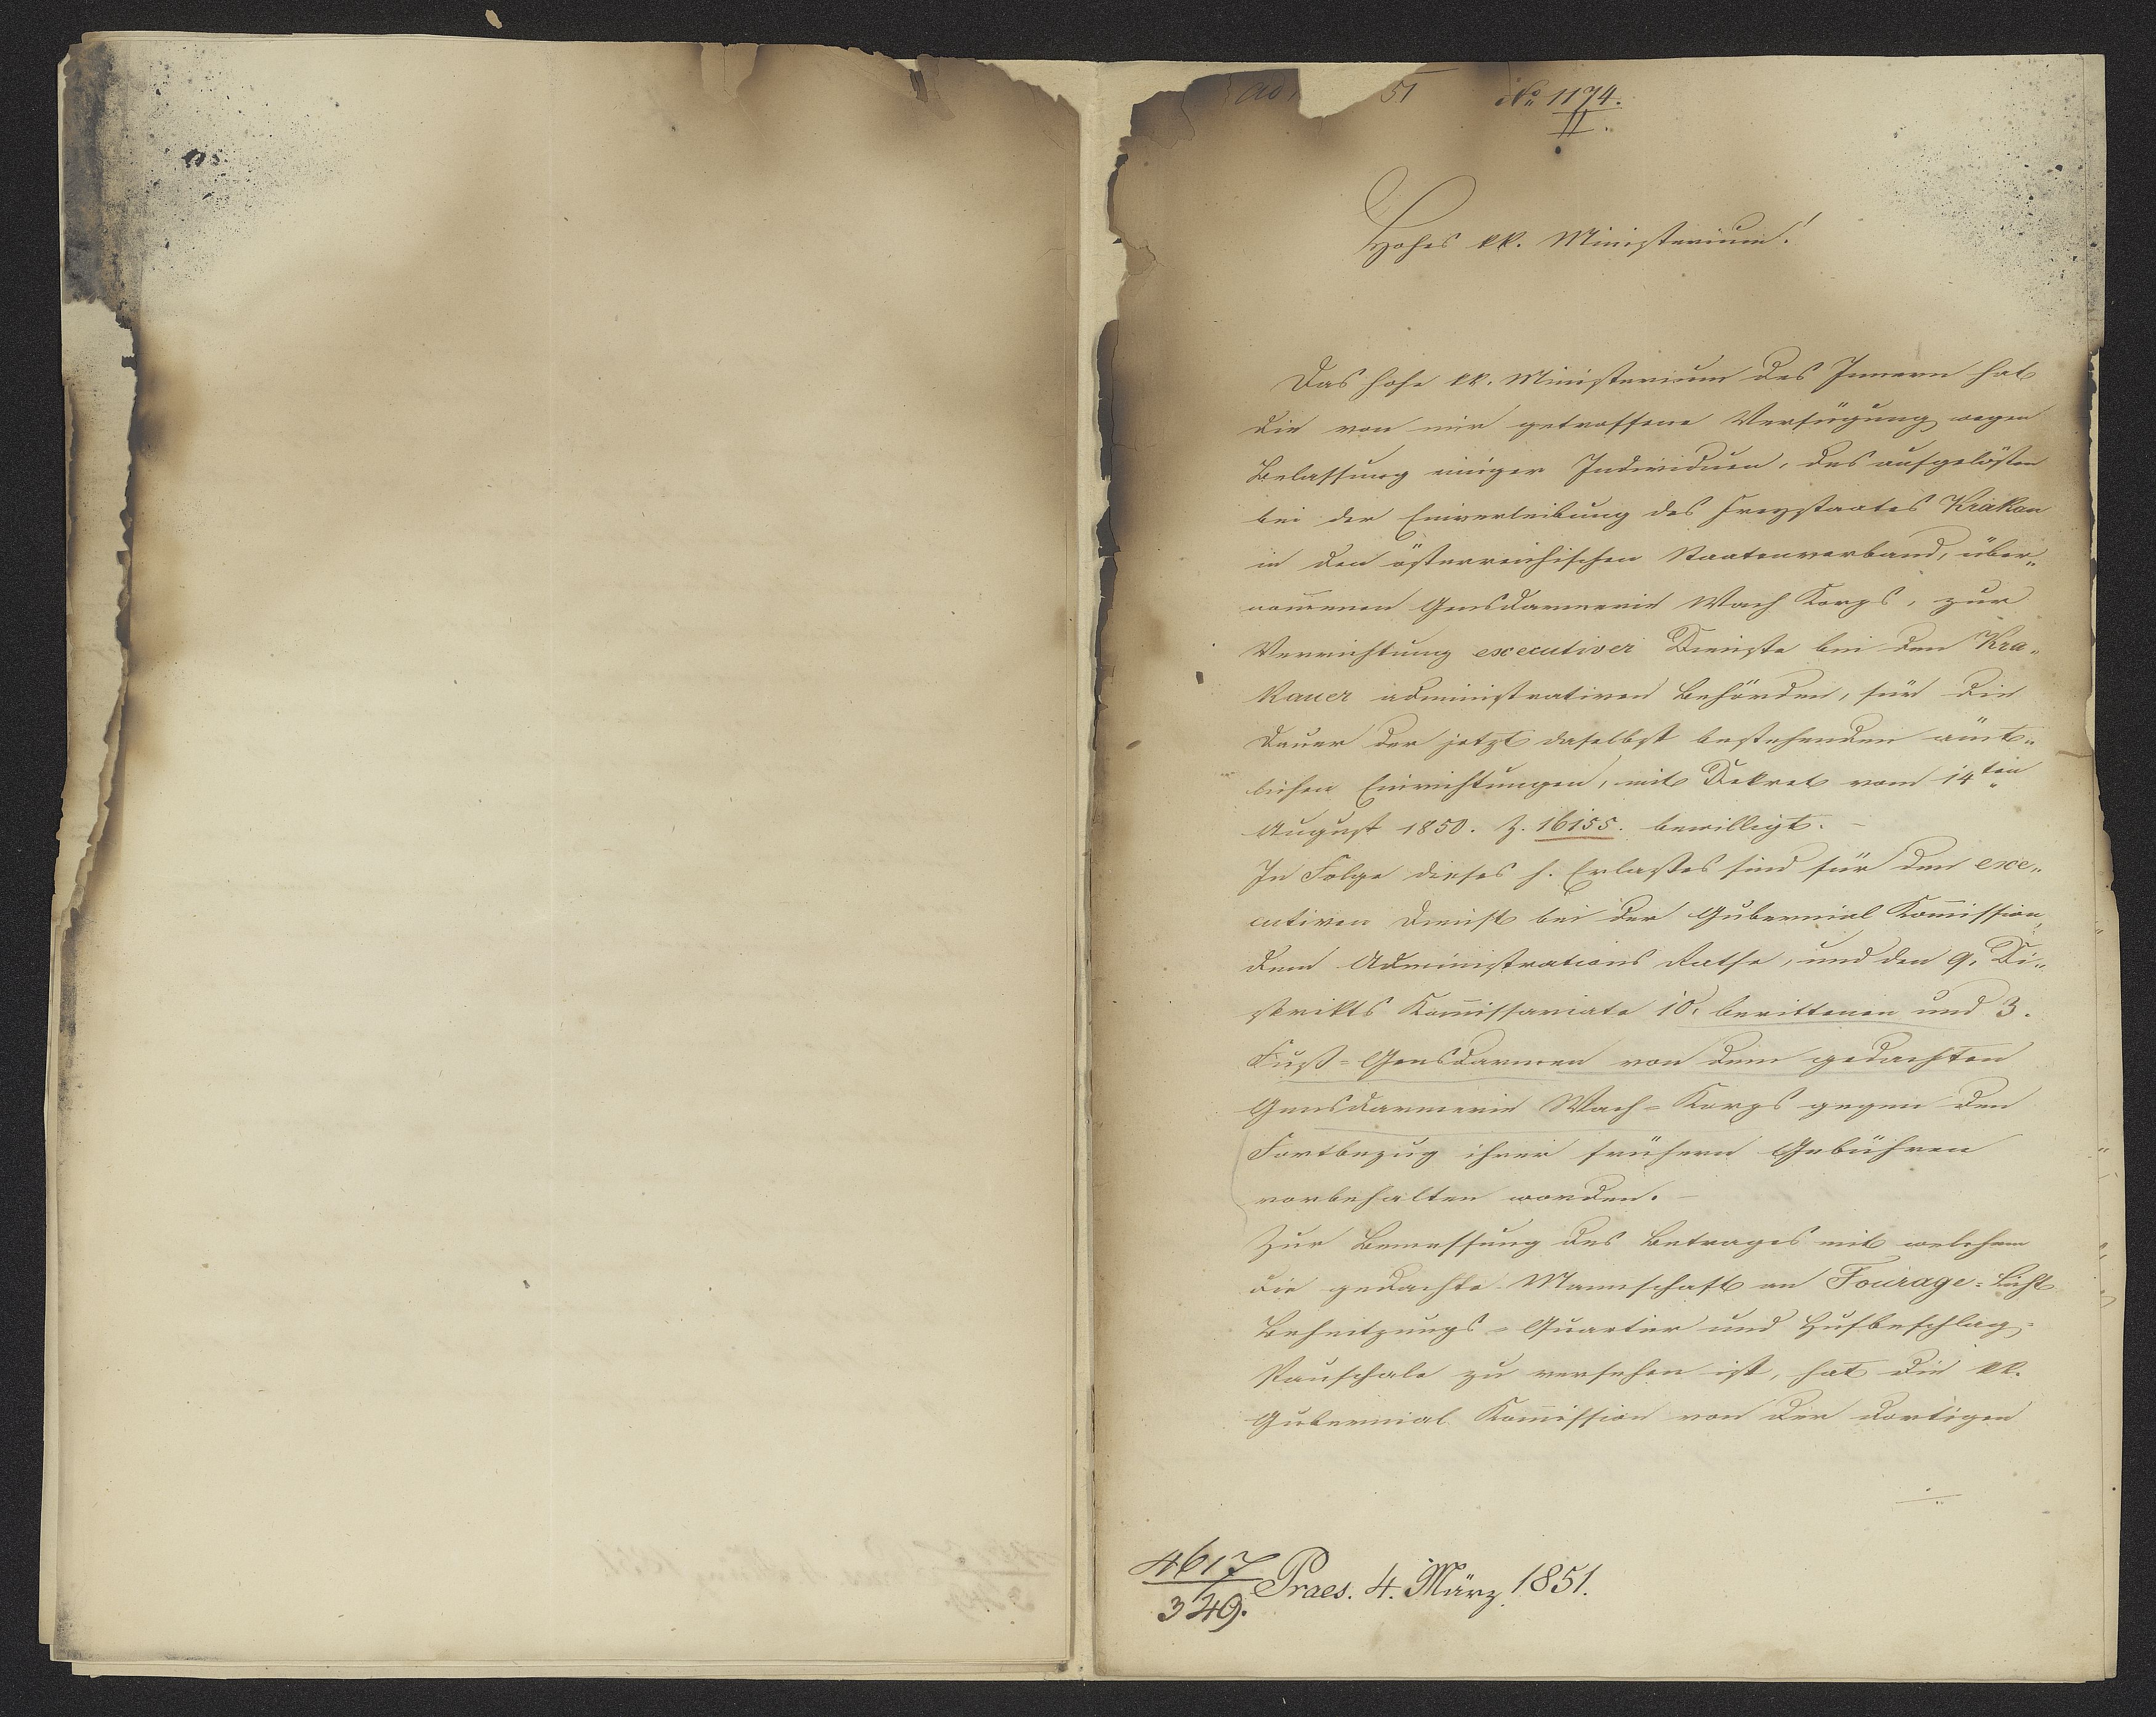 ad 51 No. 1174.
II.
Hohes kk. Ministerium!
Das hohe kk. Ministerium des Innern hat
die von mir getroffene Verfügung wegen
Belassung einiger Individuen, des aufgelösten
bei der Einverleibung des Freystaates Krakau
in den österreichischen Staatenverband, über„
nom̄enen Gensdarmerie Wach Korps, zur
Verrichtung executiver Dienste bei den Kra„
kauer administrativen Behörden, für die
Dauer der jetzt daselbst bestehenden ämt„
lichen Einrichtungen, mit Dekret vom 14ten
August 1850. Z. 16155. bewilligt. –
In Folge dieses h. Erlaßes sind für den exe„
cutiven Dienst bei der Gubernial Kom̄ission,
dem Administrations Rathe, und den 9. Di„
strikts Kom̄issariate 10. berittenen und 3.
Fuß-Gensdarmen von dem gedachten
Gensdarmerie Wach-Korps gegen den
Fortbezug ihrer frühern Gebühren
vorbehalten worden. –
Zur Bemessung des Betrages mit welchem
die gedachte Mannschaft an Fourage- Licht
Beheitzungs- Quartier und Hufbeschlag-
Pauschale zu versehen ist, hat die kk.
Gubernial Kom̄ission von der dortigen
4617
349. Praes. 4. März 1851.